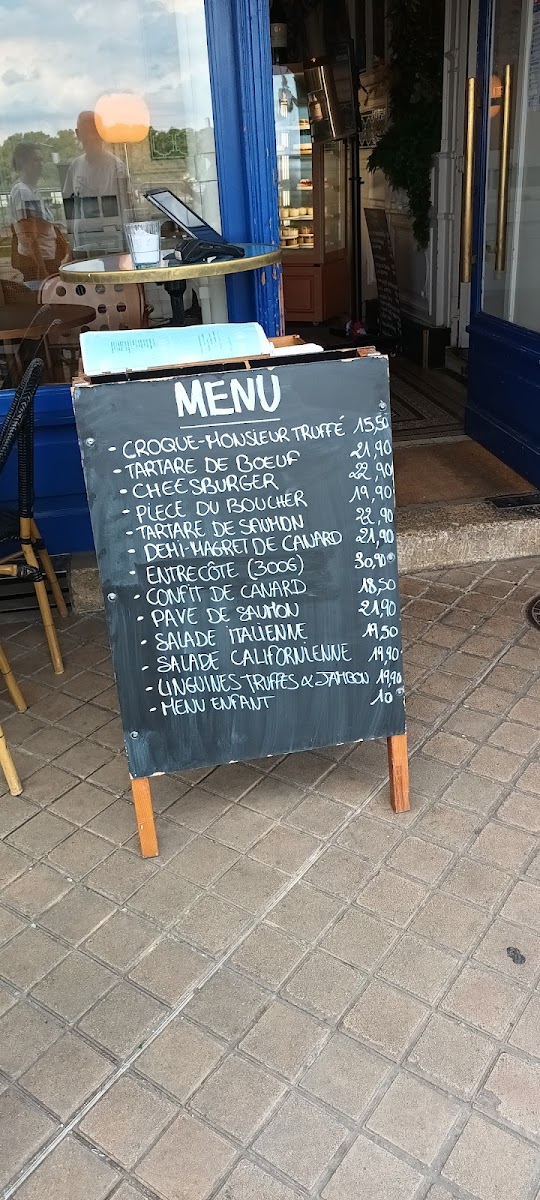 MENU
- CROQUE-MONSIEUR TRUFFÉ 15,50
- TARTARE DE BOEUF 21,90
- CHEESBURGER 22,90
- PIECE DU BOUCHER 19,90
- TARTARE DE SAUMON 22,90
- DEMI-MAGRET DE CANARD 21,90
- ENTRECÔTE (300G) 30,90
- CONFIT DE CANARD 18,50
- PAVE DE SAUMON 21,90
- SALADE ITALIENNE 19,50
- SALADE CALIFORNIENNE 19,90
- LINGUINES TRUFFES & JAMBON 19,90
- MENU ENFANT 10